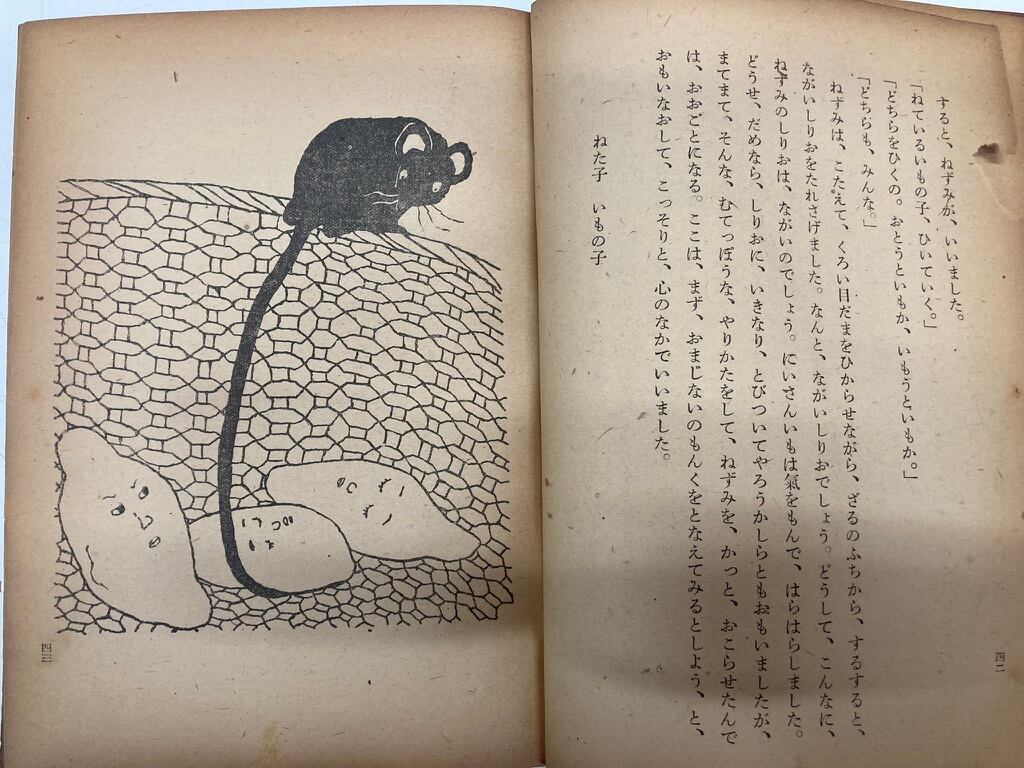 すると、ねずみが、いいました。
「ねているいもの子、ひいていく。」
「どちらをひくの。おとうといもか、いもうといもか。」
「どちらも、みんな。」
ねずみは、こたえて、くろい目だまをひからせながら、ざるのふちから、するすると、
ながいしりおをたれさげました。なんと、ながいしりおでしょう。どうして、こんなに、
ねずみのしりおは、ながいのでしょう。にいさんいもは氣をもんで、はらはらしました。
どうせ、だめなら、しりおに、いきなり、とびついてやろうかしらともおもいましたが、
まてまて、そんな、むてっぽうな、やりかたをして、ねずみを、かっと、おこらせたんで
は、おおごとになる。ここは、まず、おまじないのもんくをとなえてみるとしよう、と、
おもいなおして、こっそりと、心のなかでいいました。
ねた子 いもの子
四二
四三